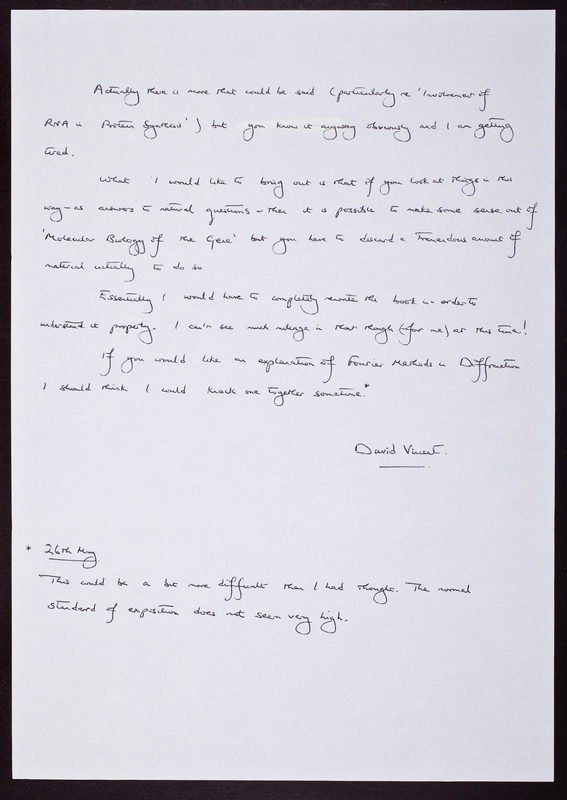 Actually there is more that could be said (particularly re 'Involvement of
RNA in Protein Synthesis') but you know it anyway obviously and I am getting
tired.
What I would like to bring out is that if you look at things in this
way - as answers to natural questions - then it is possible to make some sense out of
'Molecular Biology of the Gene' but you have to discard a tremendous amount of
material initially to do so.
Essentially I would have to completely rewrite the book in order to
understand it properly. I can't see much mileage in that though (for me) at this time!
If you would like an explanation of Fourier Methods in Diffraction
I should think I could knock one together sometime.*
David Vincent.
* 26th May
This could be a bit more difficult than I had thought. The normal
standard of exposition does not seem very high.